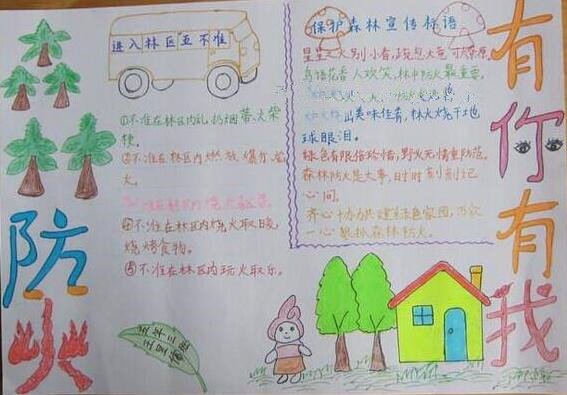 防火
有你有我
进入林区五不准
①不准在林区内乱扔烟蒂、火柴
梗。
②不准在林区内燃放爆竹、
火。
④不准在林区内烧火取暖,
烧烤食物。
⑤不准在林区内玩火取乐。
保护森林宣传标语
星星之火别小看,
鸟语花香人欢笑,林中防火最重要。
出美味佳肴,林火烧干地
球眼泪。
绿色有限倍珍惜,野火无情重防范。
森林防火是大事,时时刻刻记
心间。
齐心协力共建绿色家园,万众
一心狠抓森林防火。
五年三班